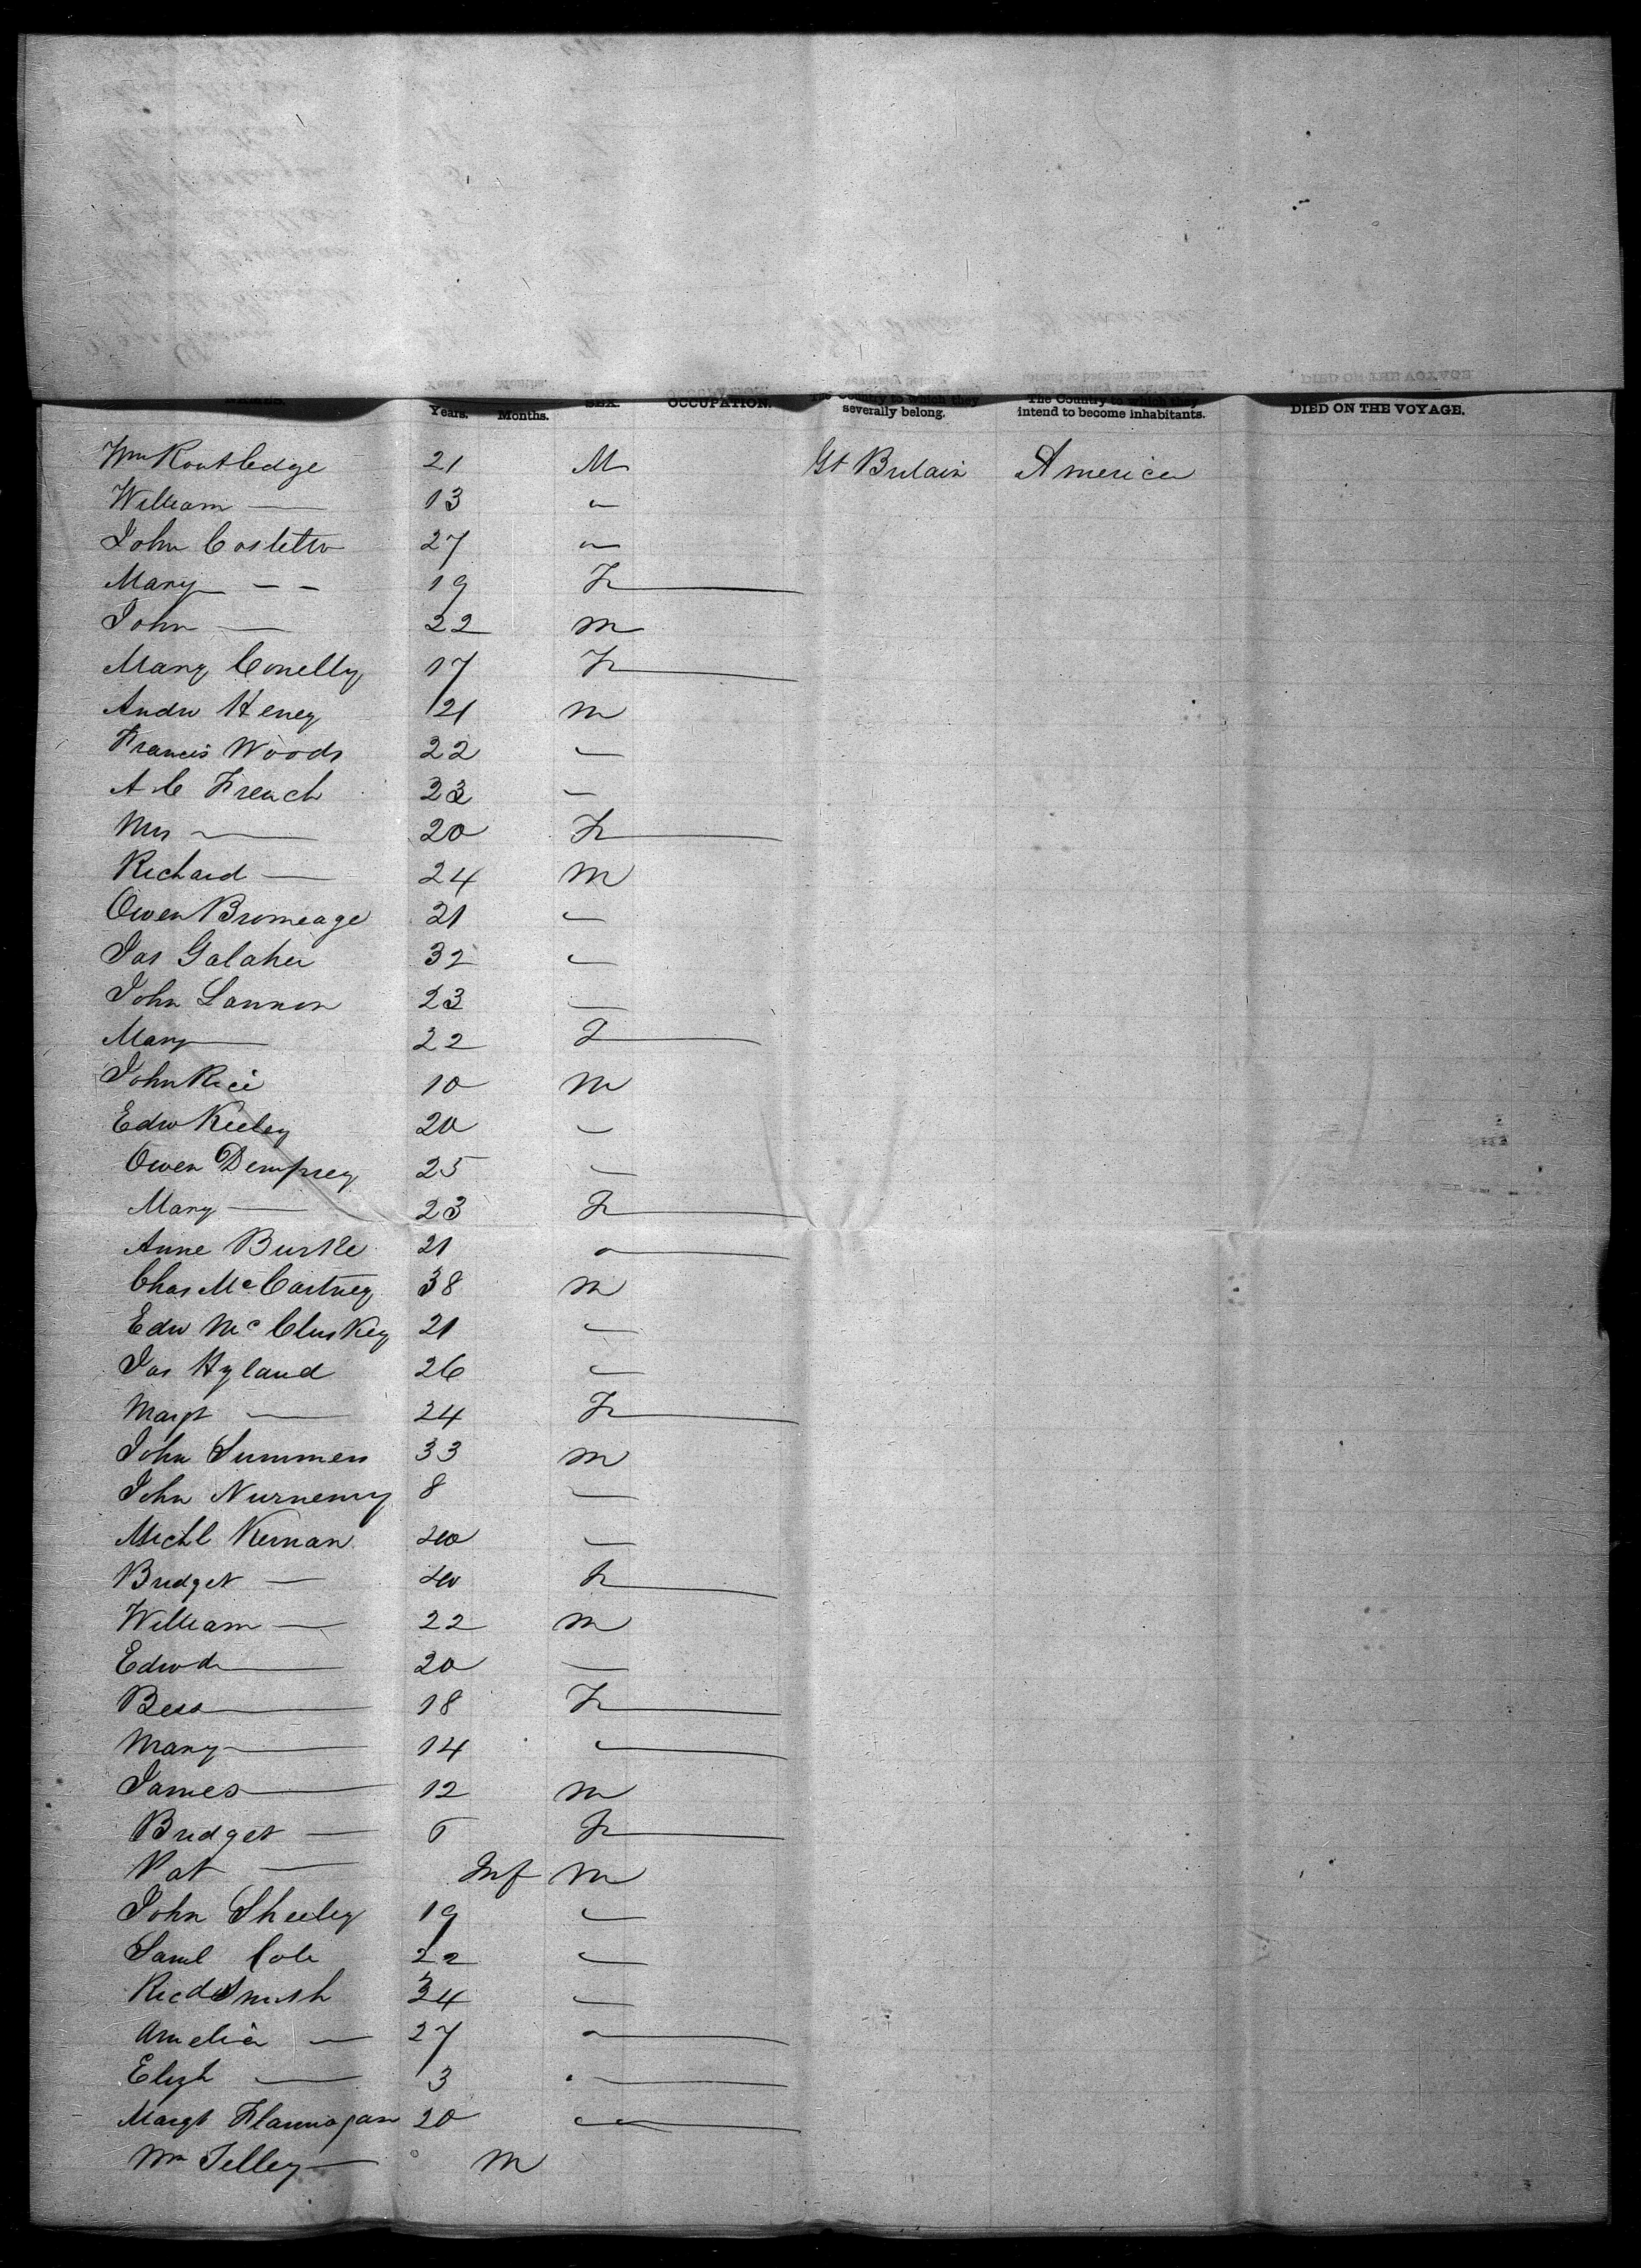 Years. Months. SEX. OCCUPATION. The Country to which they severally belong. The Country to which they intend to become inhabitants. DIED ON THE VOYAGE.
Wm Routledge 21 M Gt Britain America
William — 13 "
John Costello 27 "
Mary — — 19 F
John — 22 m
Mary Conelly 17 F
Andw Heney 21 m
Francis Woods 22 —
A C French 23 —
Mrs — 20 F
Richard — 24 m
Owen Bromeage 21 —
Jas Galaher 32 —
John Lannon 23 —
Mary — 22 F
John Rice 10 m
Edw Keeley 20 —
Owen Dempsey 25 —
Mary — 23 F
Anne Burke 21 "
Chas McCartney 38 m
Edw McCluskey 21 —
Jas Hyland 26 —
Margt — 24 F
John Summers 33 m
John Nurneny 8 —
Michl Kernan 40 —
Bridget — 40 F
William — 22 m
Edwd — 20 —
Bess — 18 F
Mary — 14 —
James — 12 m
Bridget — 6 F
Pat — Inf m
John Sheeley 19 —
Saml Cole 22 —
Ricd Smith 34 —
Amelia — 27 —
Elizh — 3 —
Margt Flannagan 20 —
Wm Telley — m